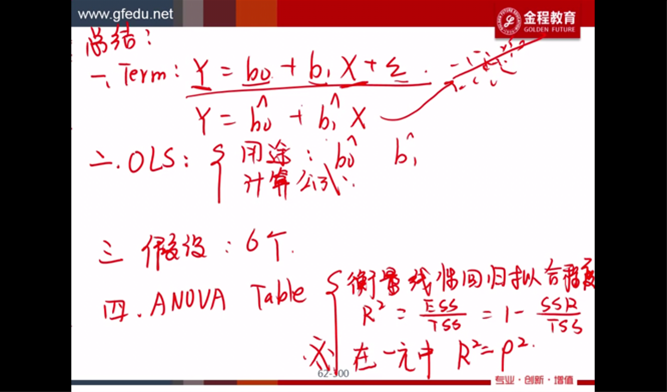 www.gfedu.net
金程教育
GOLDEN FUTURE
总结：
一、Term: Y = b0 + b1 X + ε.
Y = b̂0 + b̂1 X
二. OLS: { 用途: b̂0 b̂1
计算公式:
三 假设: 6个.
四. ANOVA Table { 衡量线性回归拟合程度
R² = ESS/TSS = 1 - SSR/TSS
※ 在一元中 R² = ρ².
62-300
专业·创新·增值